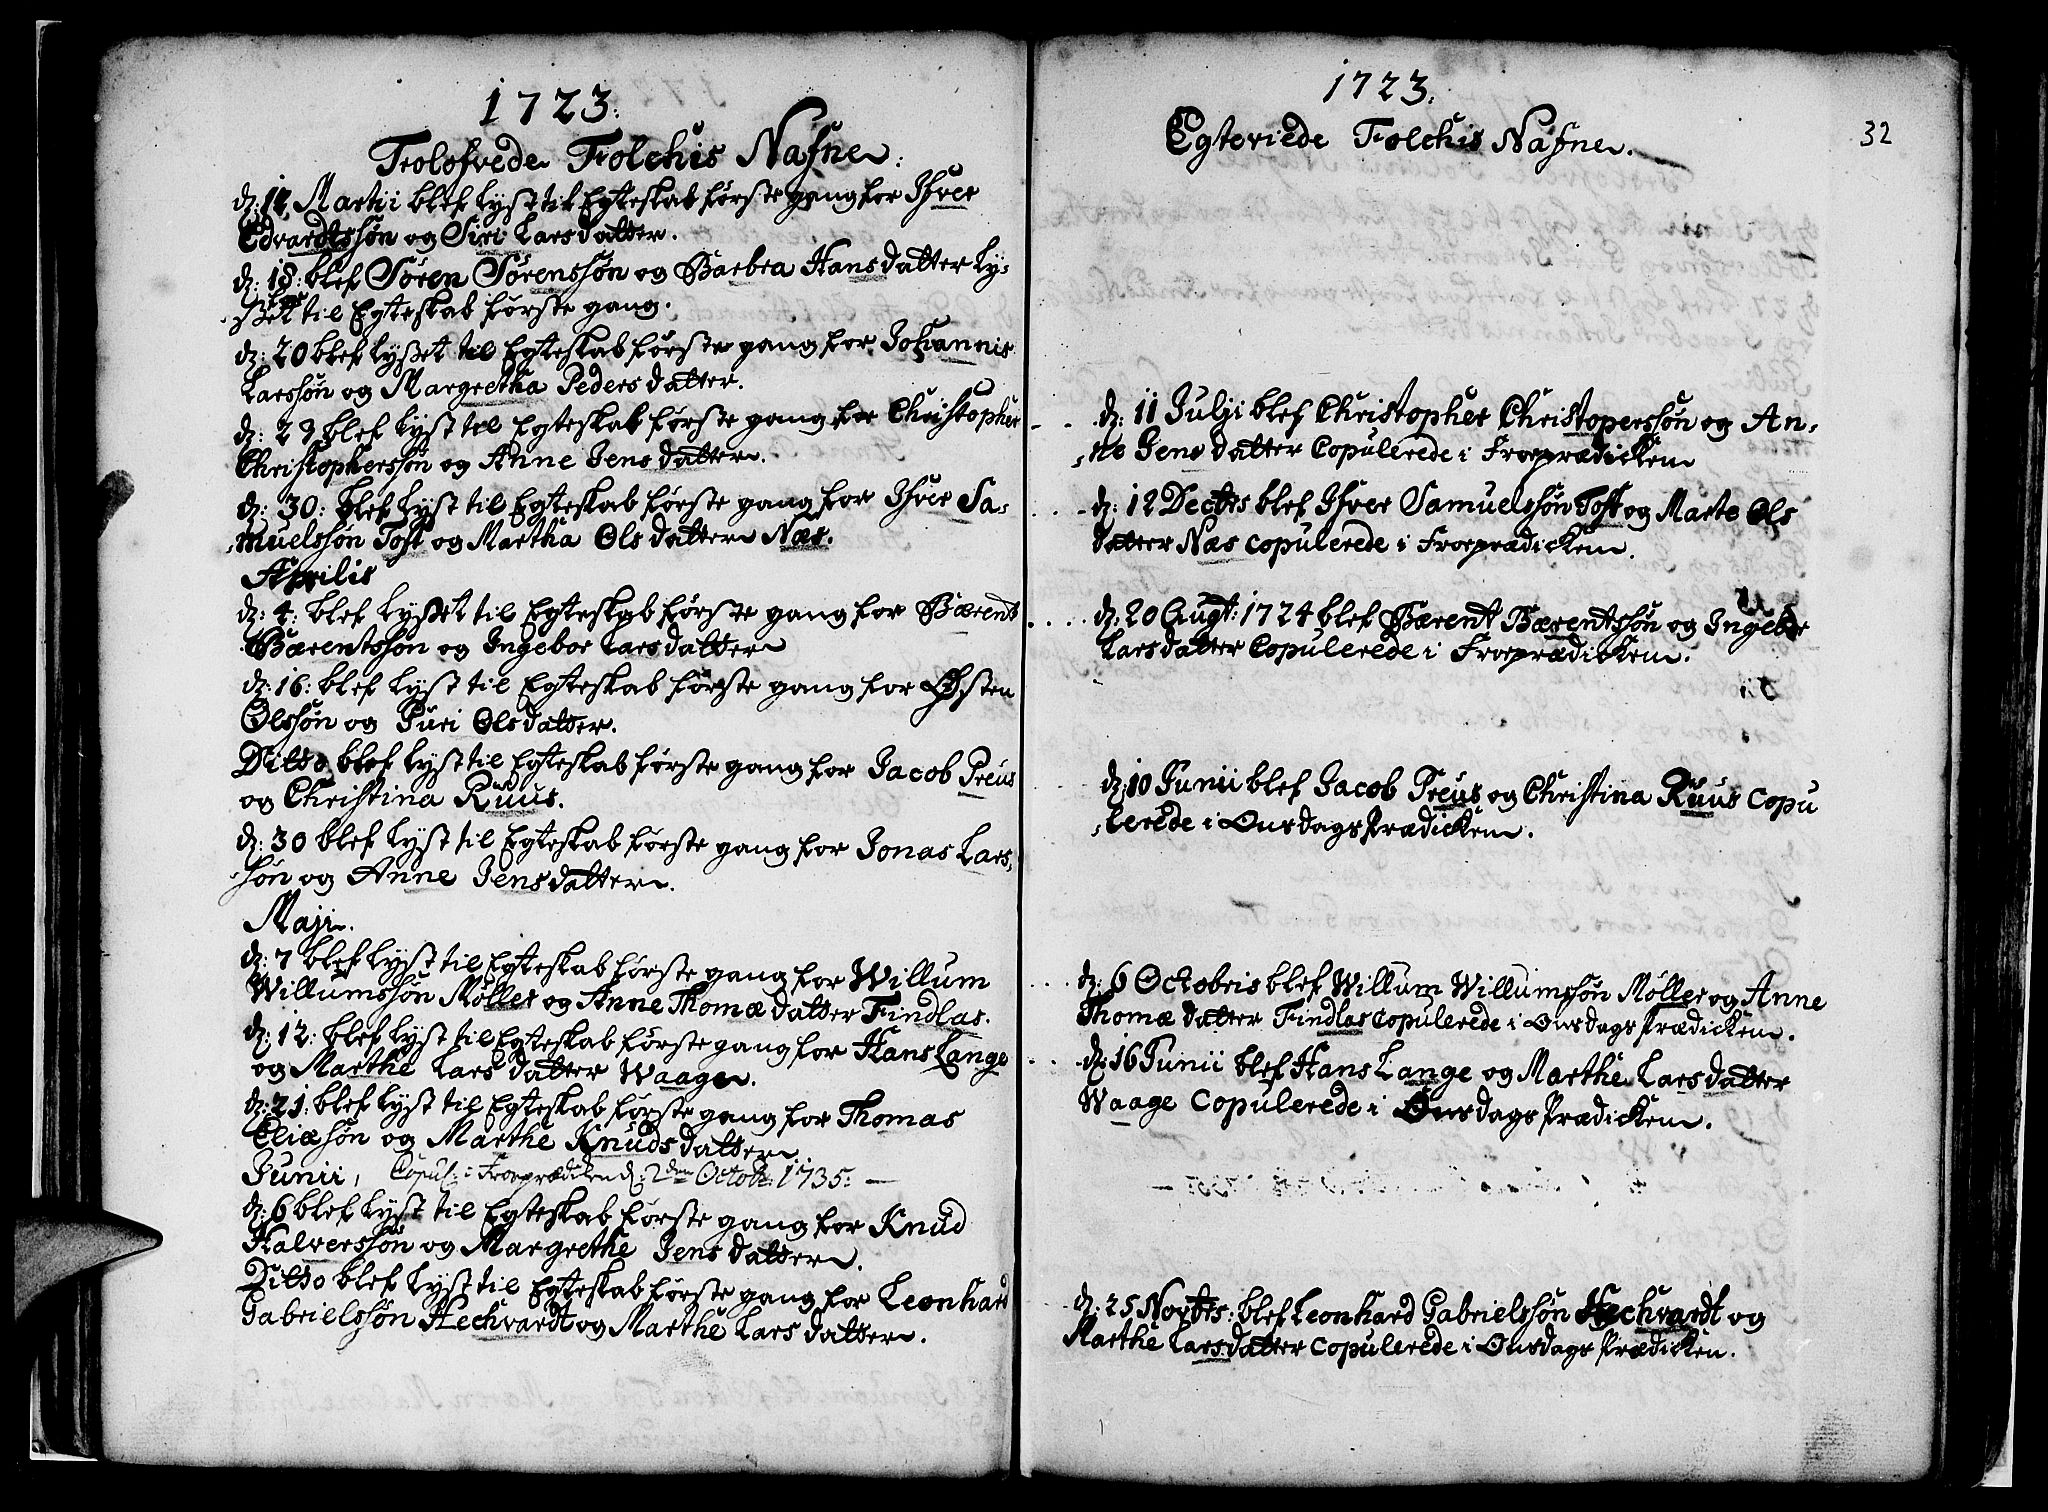 1723.
Trolofvede Folchis Nafne.
d: 14 Martii blef lyst til Egteskab første gang for Ifver
Edvardtssøn og Siri Larsdatter.
d: 18: blef Søren Sørenssøn og Barbra Hansdatter ly-
set til Egteskab første gang.
d: 20 blef lyset til Egteskab første gang for Johannis
Larssøn og Margretha Pedersdatter.
d: 23 blef lyst til Egteskab første gang for Christopher
Christopherssøn og Anne Jensdatter.
d: 30: blef lyst til Egteskab første gang for Ifver Sa-
muelssøn Toft og Martha Olsdatter Næs.
Aprilis
d: 4: blef lyset til Egteskab første gang for Bærent
Bærentssøn og Ingebor Larsdatter
d: 16: blef lyst til Egteskab første gang for Østen
Olssøn og Guri Olsdatter.
Ditto blef lyst til Egteskab første gang for Jacob Preus
og Christina Ruus.
d: 30 blef lyst til Egteskab første gang for Jonas Lars-
søn og Anne Jensdatter.
Maji.
d: 7 blef lyst til Egteskab første gang for Willum
Willumssøn Møller og Anne Thomædatter Findlas.
d: 12: blef lyst til Egteskab første gang for Hans Lange
og Marthe Larsdatter Waage.
d: 21: blef lyst til Egteskab første gang for Thomas
Eliæsøn og Marthe Knudsdatter
Junii, Copul: i Froeprædicken d: 2den Octob: 1735: —
d: 6 blef lyst til Egteskab første gang for Knud
Halverssøn og Margrethe Jensdatter.
Ditto blef lyst til Egteskab første gang for Leonhard
Gabrielssøn Hechvardt og Marthe Larsdatter.
1723.
Egteviede Folchis Nafne.
32
d: 11 Julji blef Christopher Christoperssøn og An-
ne Jensdatter Copulerede i Froeprædicken
d: 12 Dectbs blef Ifver Samuelssøn Toft og Marte Ols
datter Næs copulerede i Froeprædicken.
d: 20 Augt: 1724 blef Bærent Bærentssøn og Ingebor
Larsdatter Copulerede i Froeprædicken.
d: 10 Junii blef Jacob Preus og Christina Ruus Copu
lerede i Onsdags Prædicken.
d: 6 Octobris blef Willum Willumssøn Møller og Anne
Thomædatter Findlas Copulerede i Onsdags Prædicken.
d: 16 Junii blef Hans Lange og Marthe Larsdatter
Waage Copulerede i Onsdags Prædicken.
d: 25 Novbs: blef Leonhard Gabrielssøn Hechvardt og
Marthe Larsdatter Copulerede i Onsdags Prædicken.